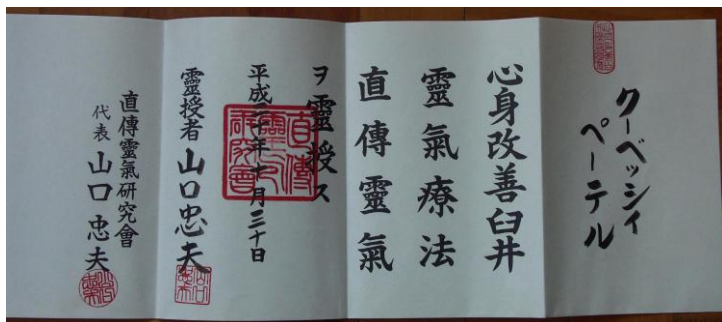 クーベッシィ
ペーテル
心身改善臼井
靈氣療法
直傳靈氣
ヲ靈授ス
平成二十年十月三十日
靈授者 山口忠夫
直傳靈氣研究會
代表 山口忠夫
直傳靈氣研究會